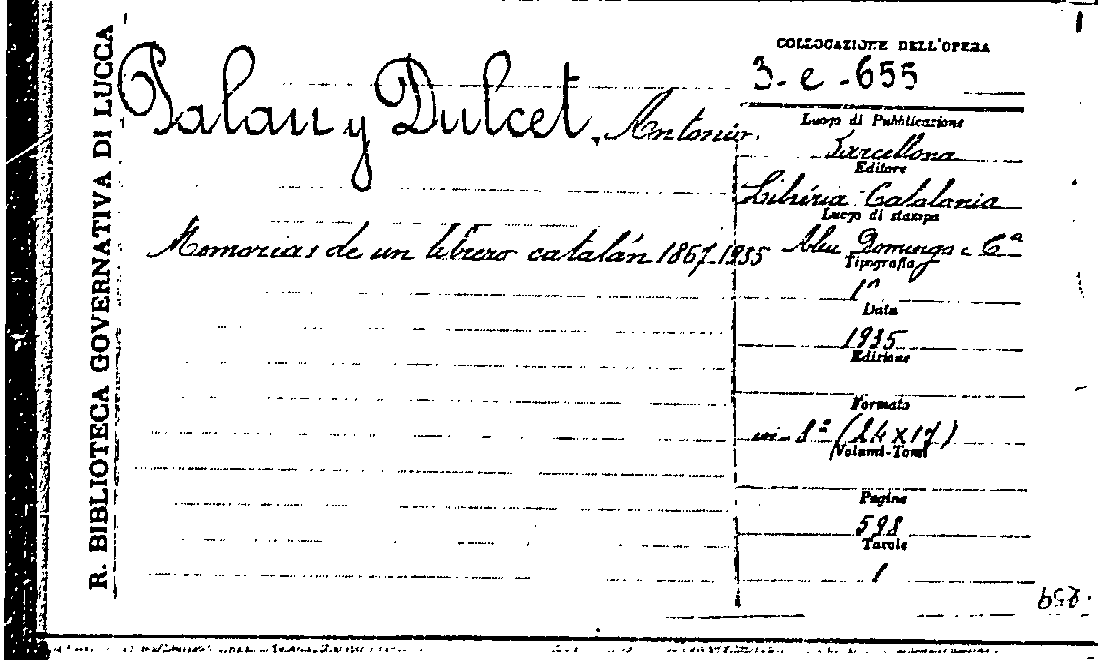 R. BIBLIOTECA GOVERNATIVA DI LUCCA
Palau y Dulcet, Antonio.
Memorias de un librero catalán 1867-1935
COLLOCAZIONE DELL'OPERA
3-e-655
Luogo di Pubblicazione
Barcellona
Editore
Libréria Catalonia
Luogo di stampa
Domingo e Cª
Tipografia
Data
1935
Edizione
Formato
in-8º (24x17)
Volumi-Tomi
Pagine
598
Tavole
1